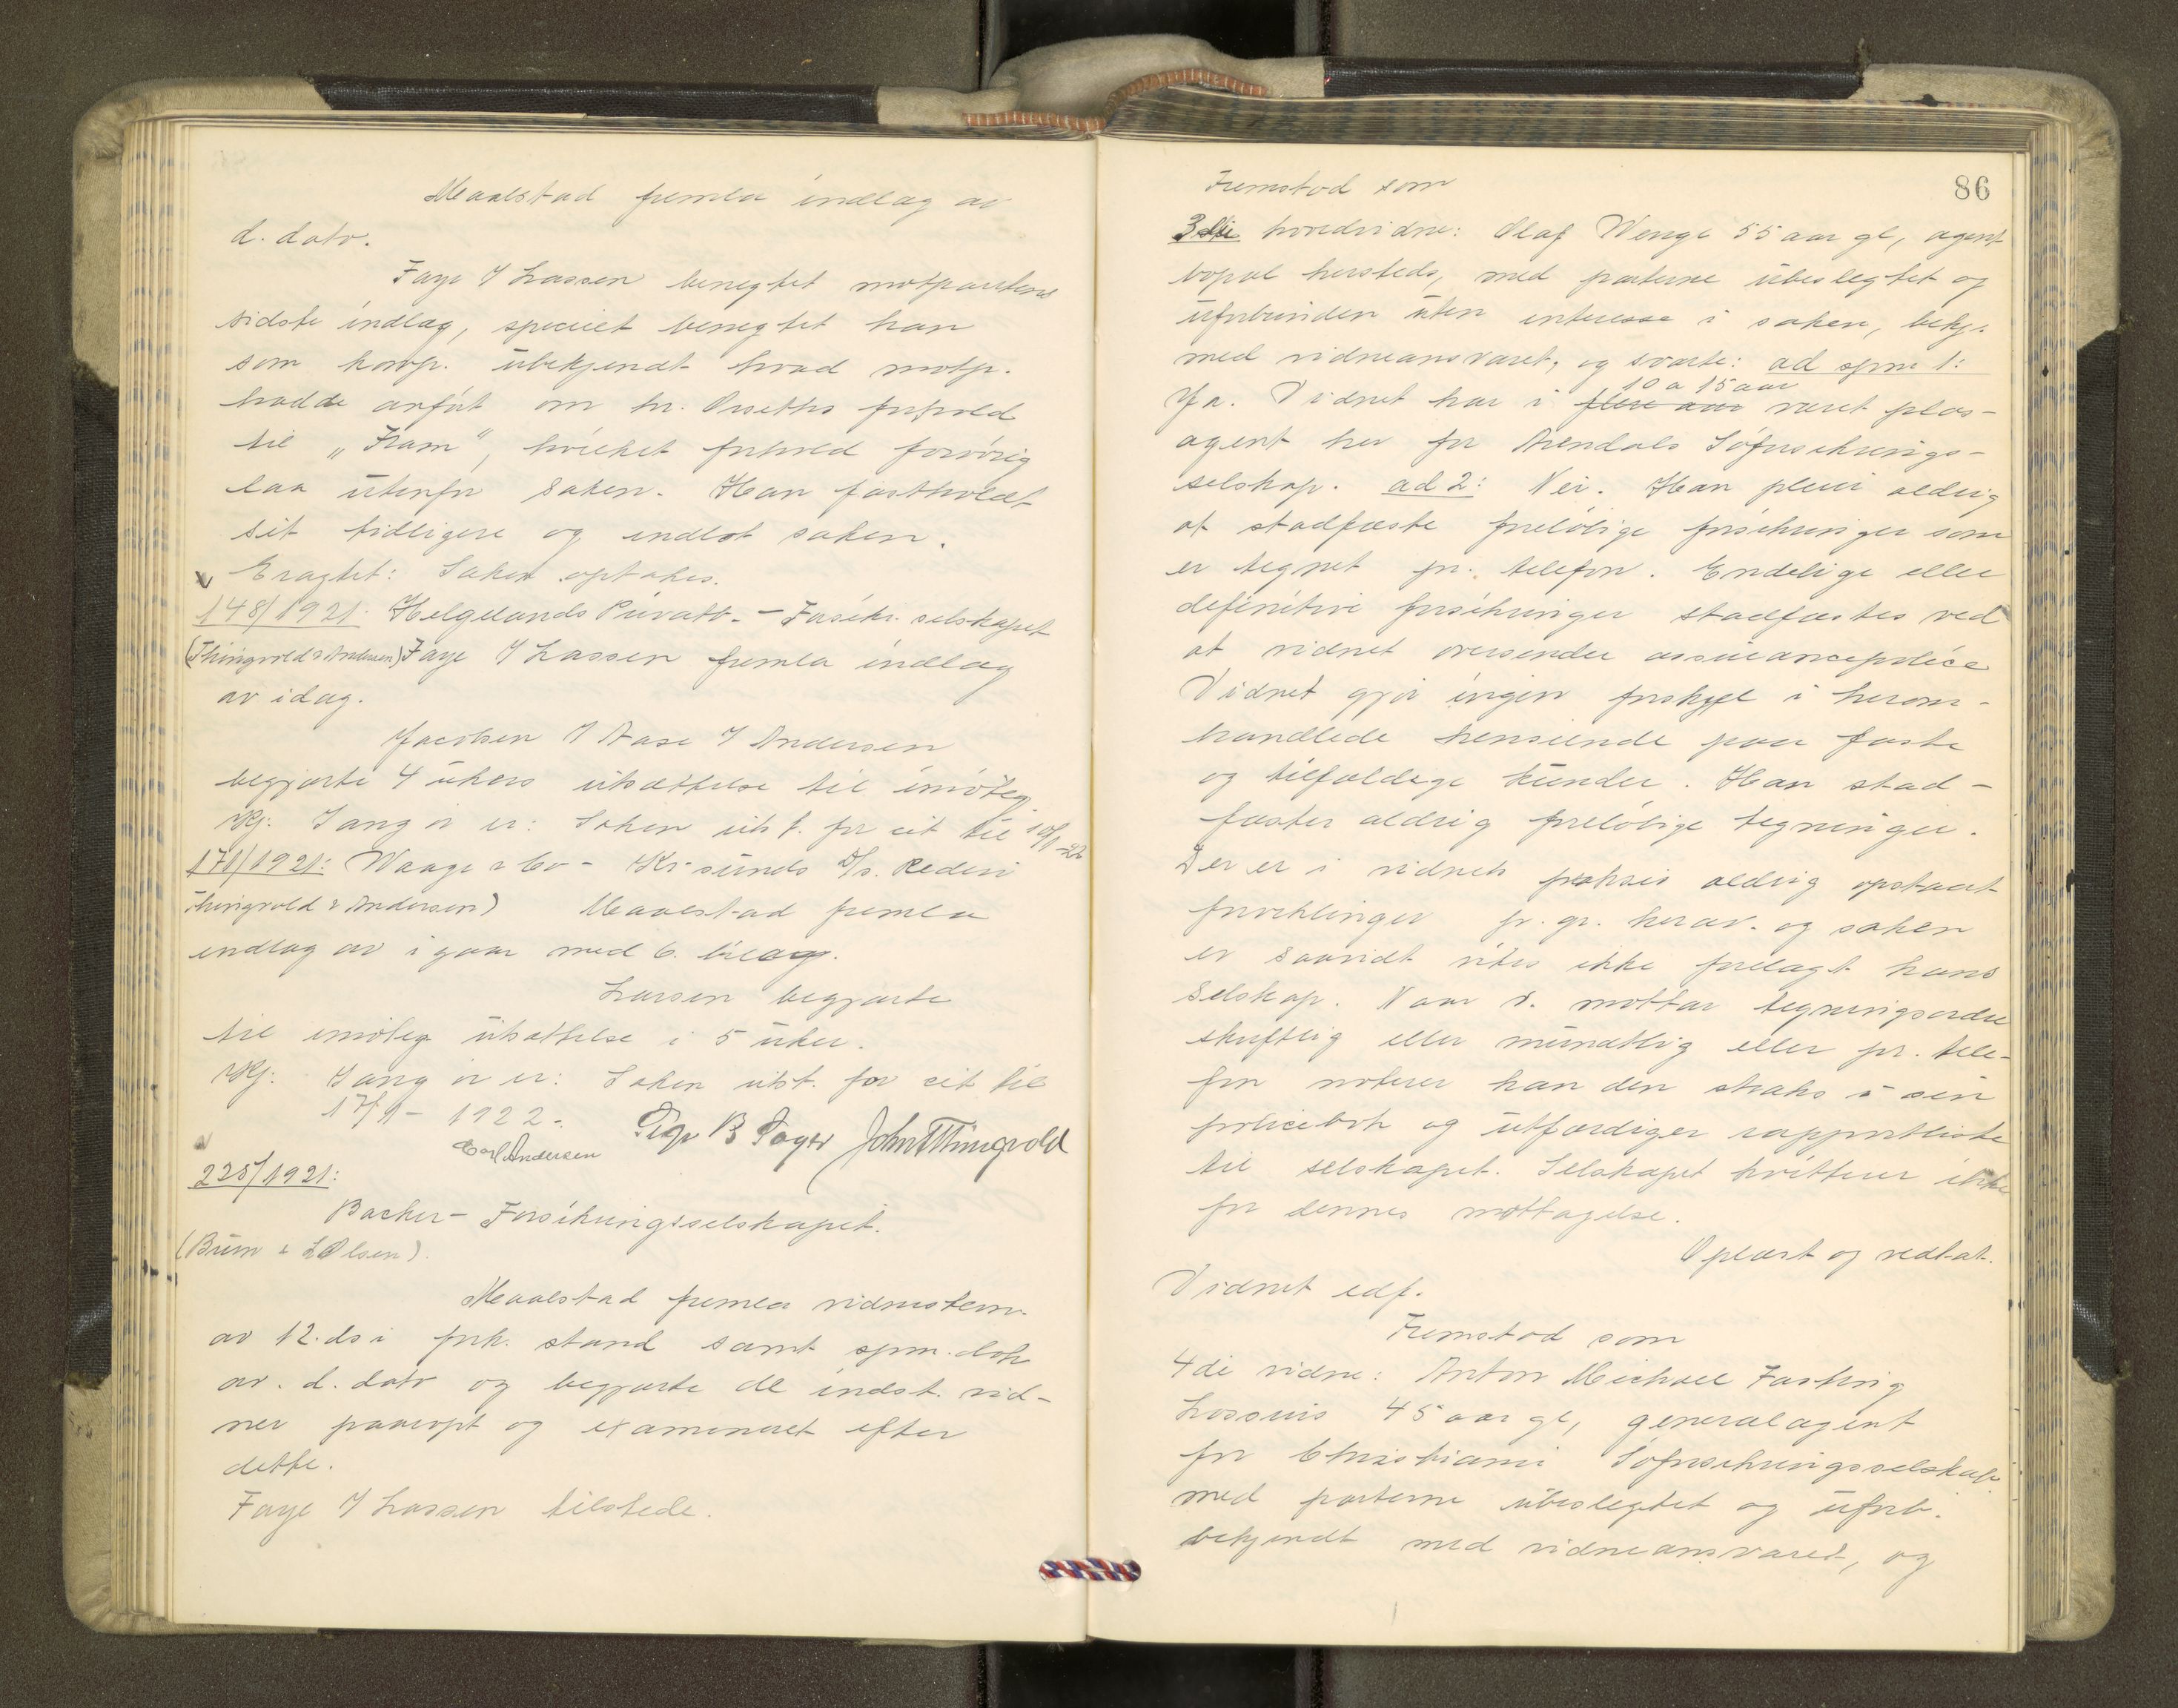 Maalstad fremla indlæg av
d. dato.
Faye f Lassen benegtet motpartens
sidste indlæg, specielt benegtet han
som komp. ubekjendt hvad motp.
hadde anført om hr. Orseths forhold
til „Fram", hvilket forhold forøvrig
laa utenfor saken. Han fastholdt
sit tidligere og indlot saken.
Eragtet: Saken optakes.
148/1921: Helgelands Privatb. - Forsikr. selskapet
(Thingvold & Andersen) Faye f Lassen fremla indlæg
av idag.
Jacobsen f Aase f Andersen
begjærte 4 ukers utsættelse til imøteg.
Kj. Sang. ir er: Saken uts t. for eit til 10/1-22
171/1921: Waage & Co - Kr.sunds D/s. Rederi
Thingvold & Andersen) Maalstad fremla
indlæg av igaar med 6. bilag.
Larsen begjærte
til imøteg utsættelse i 5 uker.
Kj: Sang ir er: Saken utst. for eit til
17/1 - 1922.
Carl Andersen John Thingvold
225/1921:
Backer - Forsikringsselskapet.
(Brun & L Olsen).
Maalstad fremla vidnestevn.
av 12. ds i fork. stand samt spm. dok
av. d. dato og begjærte de indst. vid-
ner paaropt og examineret efter
dette.
Faye f Lassen tilstede.
86
Fremstod som
3die hovedvidne: Olaf Wenge 55 aar gl, agent
bopæl hersteds, med parterne ubeslegtet og
uforbunden uten interesse i saken, bekj.
med vidneansvaret, og svarte: ad spm 1:
10 a 15 aar
Ja. Vidnet har i flere aar været plas-
agent her for Arendals Søforsikrings-
selskap. ad 2: Nei. Han pleier aldrig
at stadfæste foreløbige forsikringer som
er tegnet pr. telefon. Endelige eller
definitive forsikringer stadfæstes ved
at vidnet oversender assurancepolice
Vidnet gjør ingen forskjel i herom-
handlede henseende paa faste
og tilfældige kunder. Han stad-
fæster aldrig foreløbige tegninger.
Der er i vidnets praksis aldrig opstaat
forviklinger pr. gr. herav. og saken
er saavidt vites ikke forelagt hans
selskap. Naar v. mottar tegningsordre
skriftlig eller mundtlig eller pr. tele-
fon noterer han den straks i sin
policebok og utfærdiger rapportliste
til selskapet. Selskapet kvitterer ikke
for dennes mottagelse.
Oplæst og vedtat.
Vidnet edf.
Fremstod som
4de vidne: Anton Michael Fasting
Lossius 45 aar gl, generalagent
for Christiania Søforsikringsselskab.
med parterne ubeslegtet og uforb.
bekjendt med vidneansvaret, og